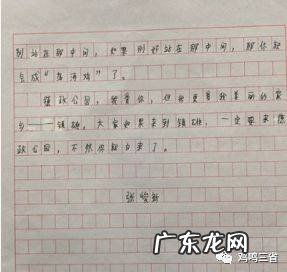 别站在那中间，如果别好站在那中间，那你就
会成“落汤鸡”了。
镇政公园，我爱你，但我更爱我美丽的家
乡——镇雄，大家如果来到镇雄，一定要来
政公园，不然你就白来了。
张骏新
广东龙网
鸡鸣三省